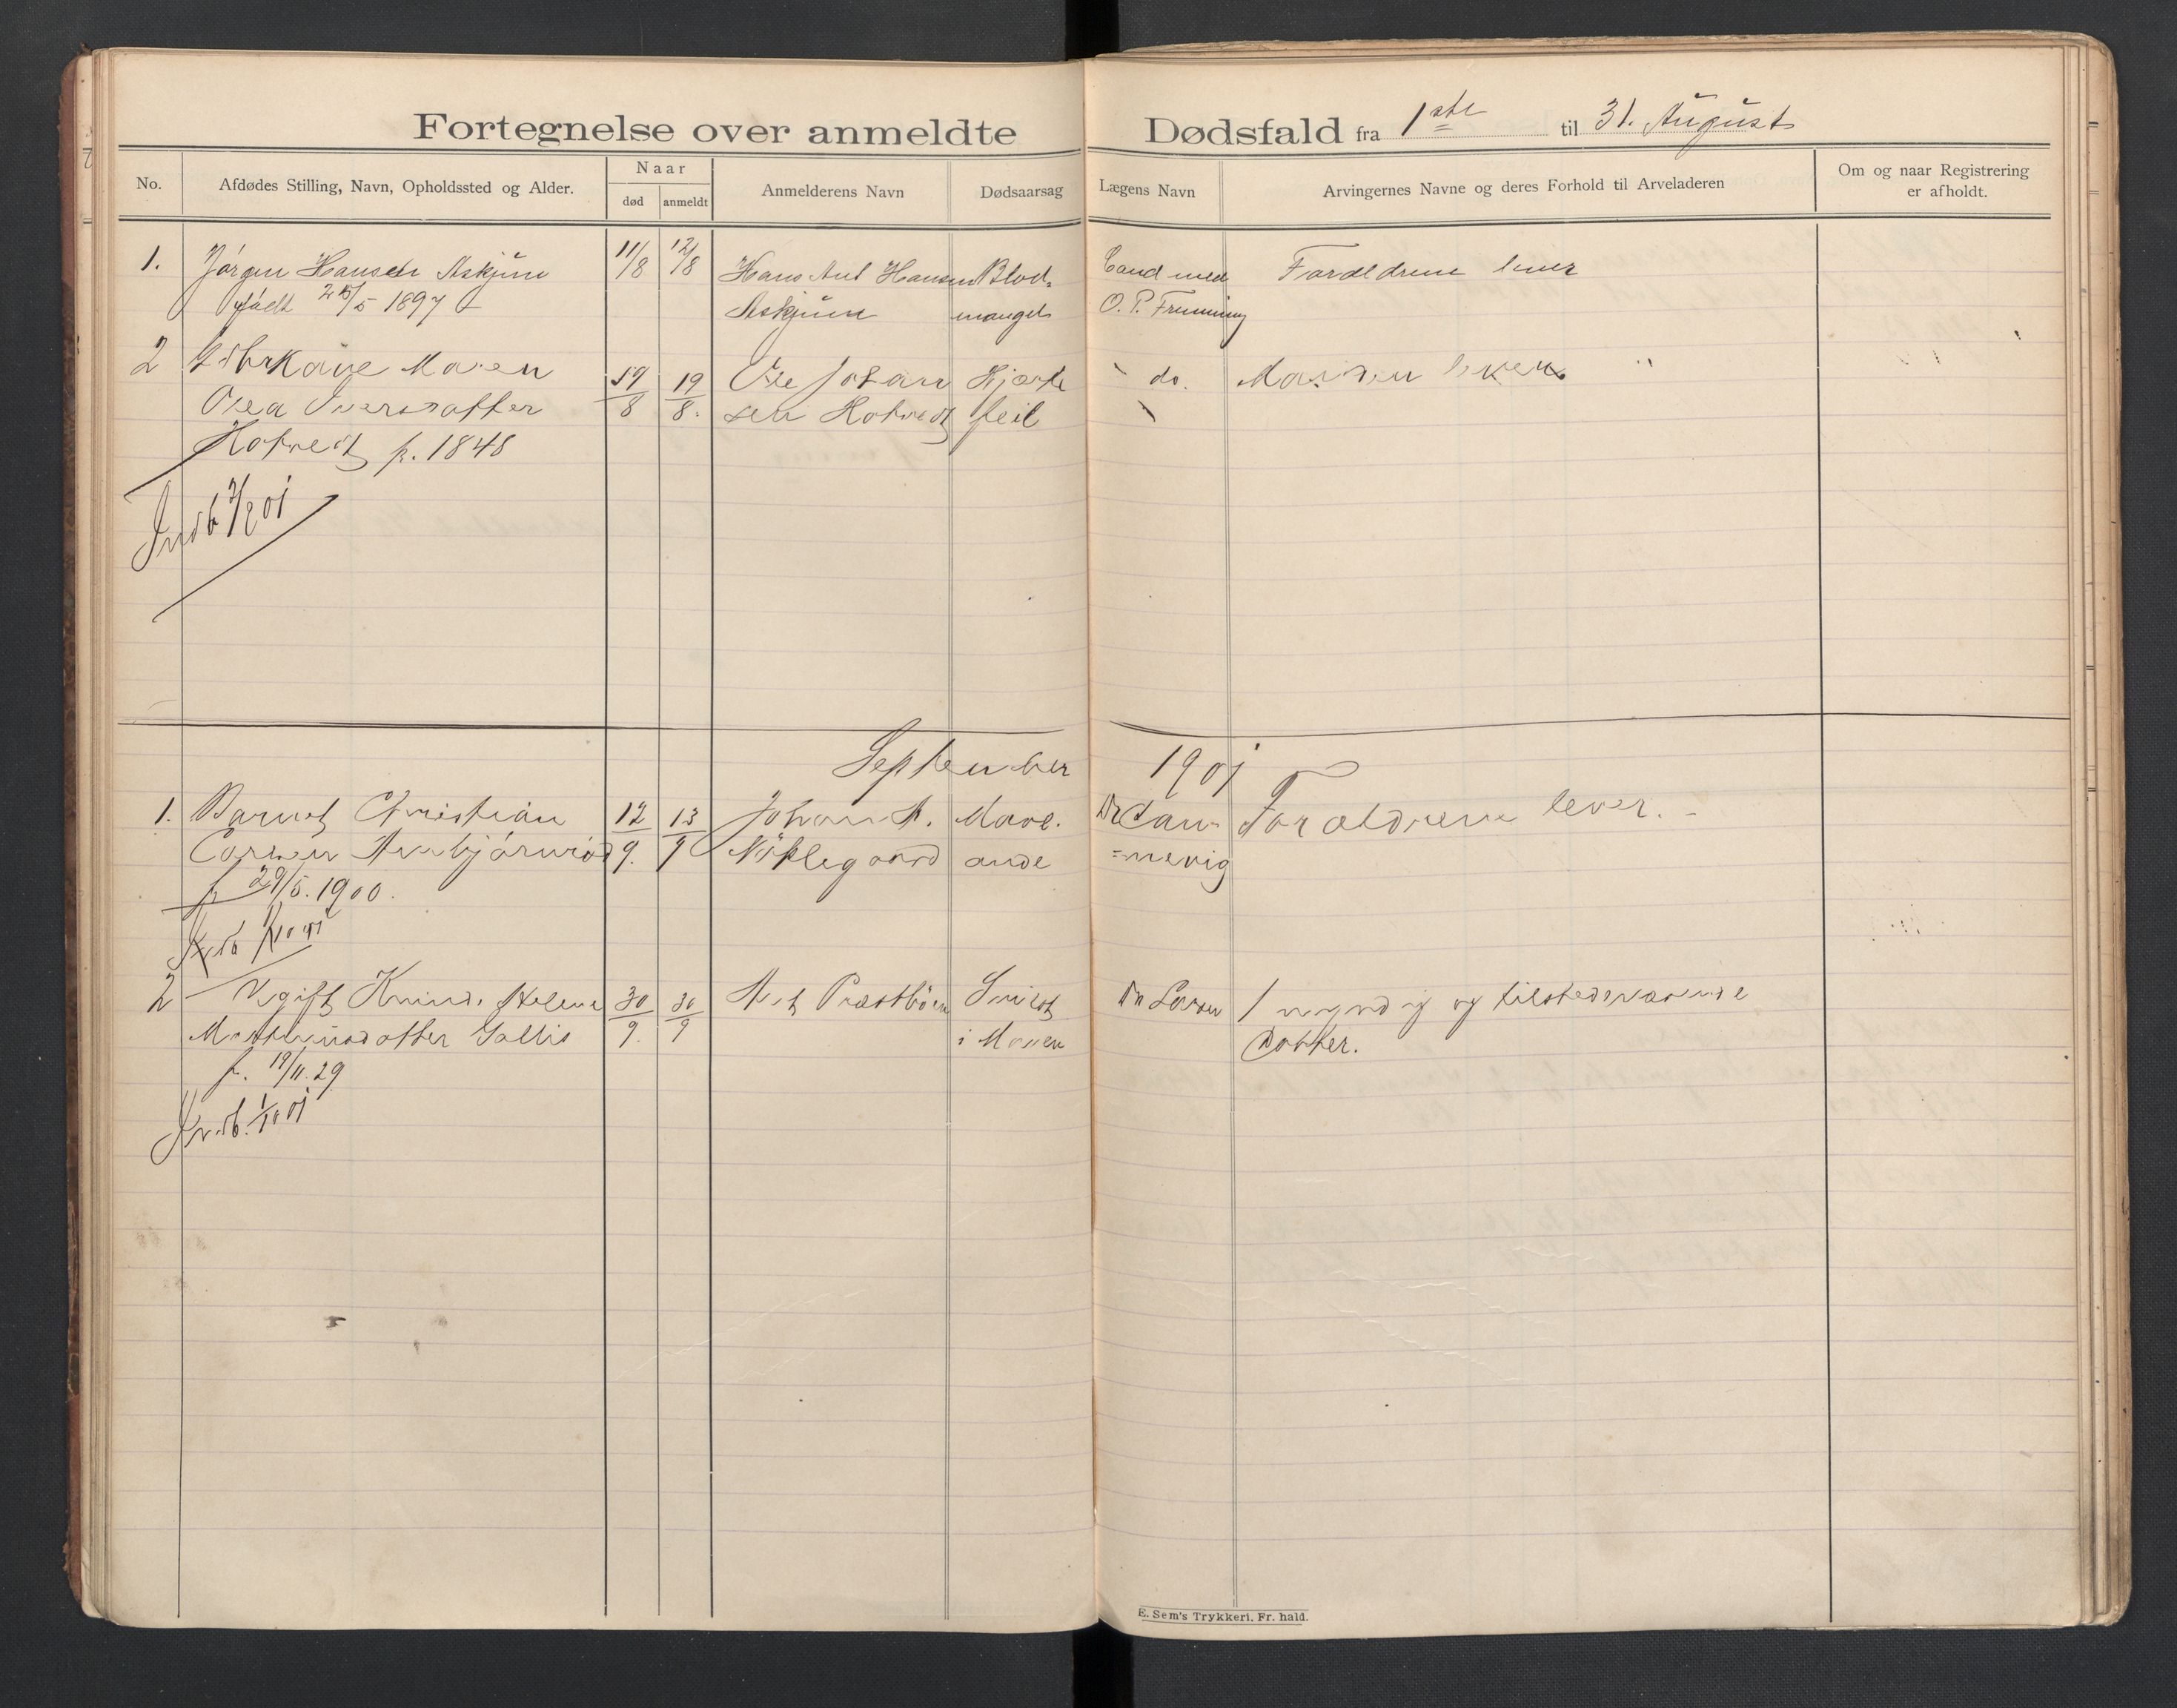 Fortegnelse over anmeldte Dødsfald fra 1ste til 31. August
No.
Afdødes Stilling, Navn, Opholdssted og Alder.
Naar
død
anmeldt
Anmelderens Navn
Dødsaarsag
Lægens Navn
Arvingernes Navne og deres Forhold til Arveladeren
Om og naar Registrering
er afholdt.
1. Jørgen Hansen Askjum 11/8 12/8 Hans Ant Hansen Blod- Cand med Forældrene lever
født 25/5 1897 Askjum mangel O. P. Fremming
2 Maren 19 Ole Johan Hjerte do. Manden lever
Olea Iversdatter 8 8. sen Hotvedt feil
Hotvedt f. 1848
Indb 2/9 01
September 1901
1. Barnet Christian 12 13 Johan A. Mave. Dr Dan- Forældrene lever. -
9. 9 Nøklegaard onde =nevig
f 29/5. 1900.
Indb 1/10 01
2 Ugift Kvinde Helene 30 30 Ant Præstbøen Smerte Dr Larsen 1 myndig og tilstedeværende
Mathiasdatter Gallis 9. 9 i Maven Datter.
f. 19/11. 29
Indb. 1/10 01
E. Sem's Trykkeri. Fr. hald.